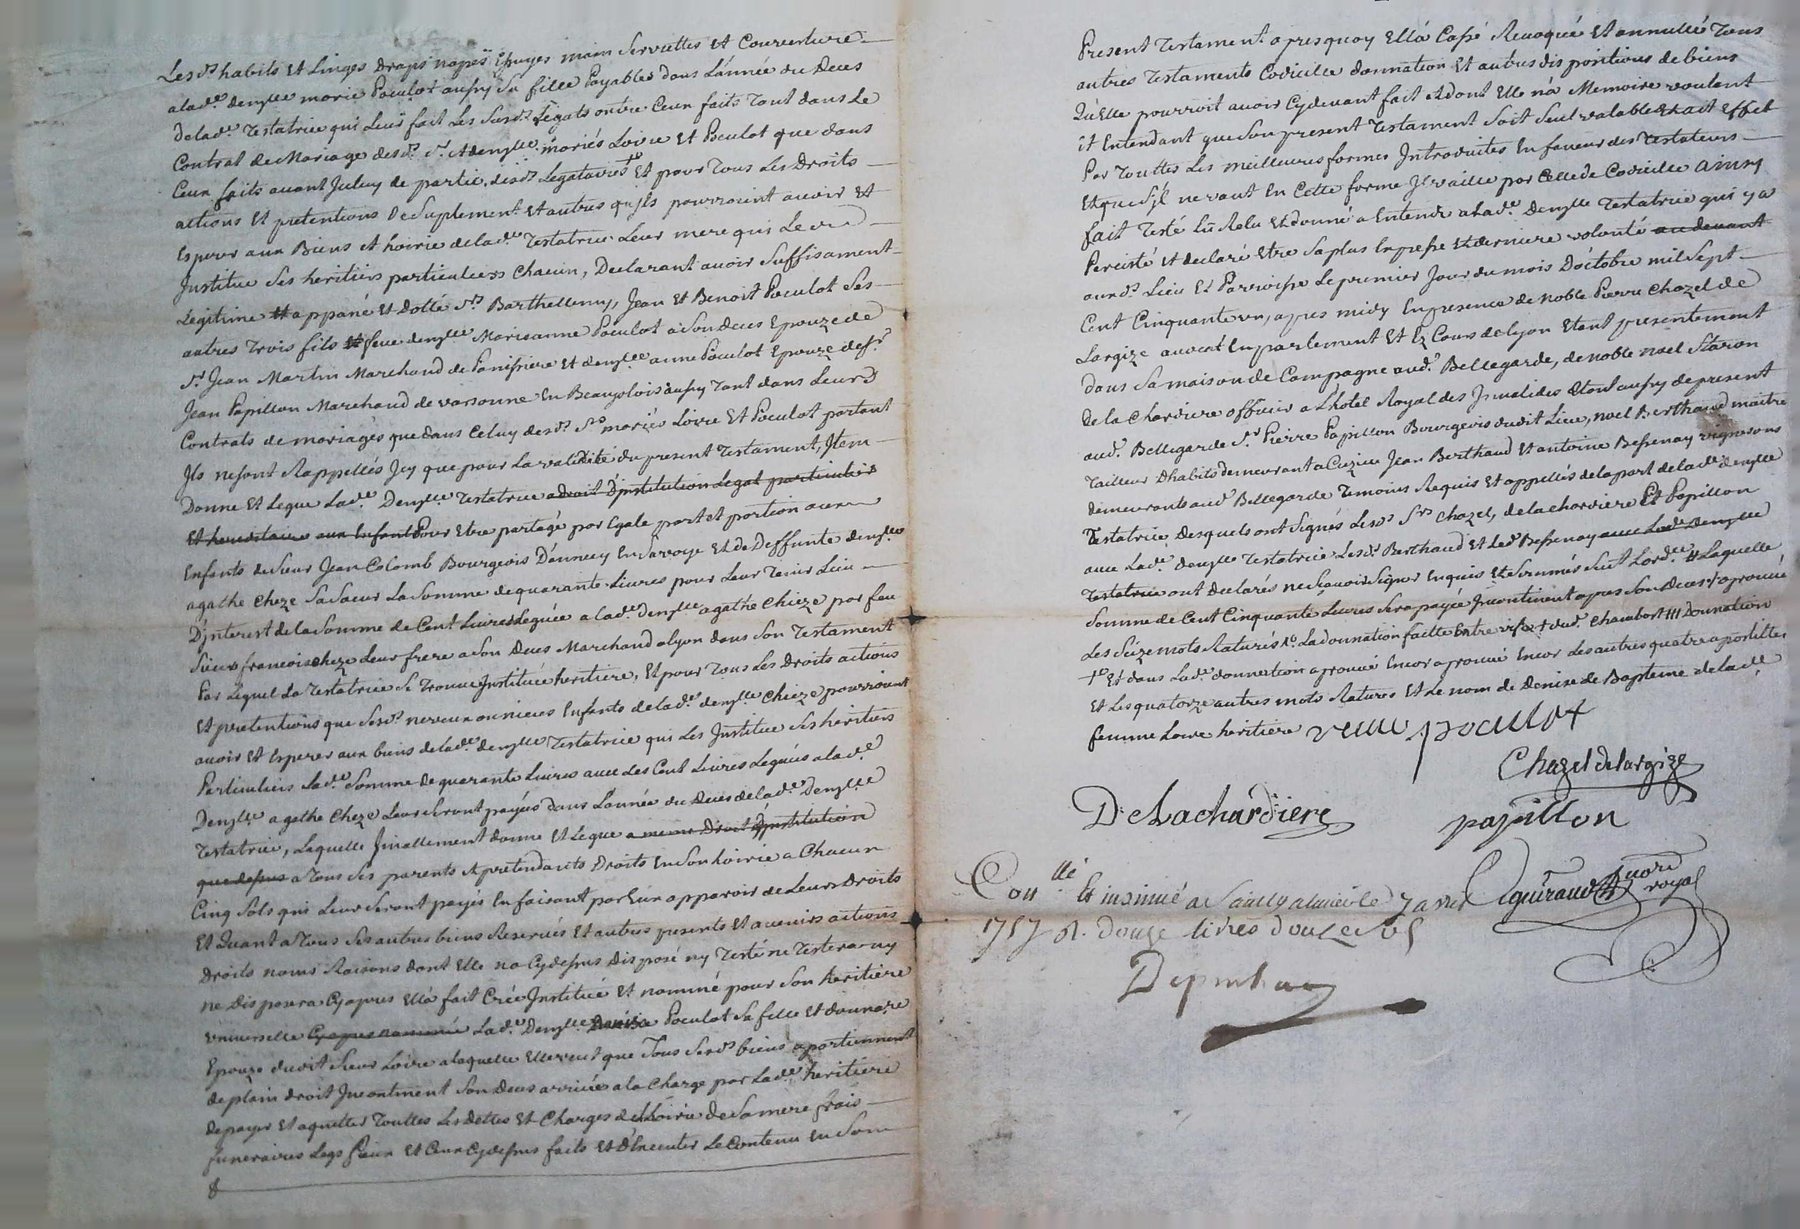 Lesds habits et Linges draps napes Essuyes main Serviettes et Couverture
alade denlle marie Poculot aussy Sa fille Payables dans L'année du Deces
delade Testatrice qui Leur fait Les Susds Legats outre Ceux faits Tant dans Le
Contrat de Mariage desds Sr et denlle mariés Loire et Poculot que dans
Ceux faits avant Jceluy de partie desds Legataires et pour Tous Les Droits
actions et pretentions de Suplement et autres qu'jls pourroient avoir et
Esperer aux Biens et hoirie delade Testatrice Leur mere qui Les
Jnstitue Ses heritiers particuliers Chacun, Declarant avoir Suffisament
Legitime et appané et Dotté Srs Barthellemy, Jean et Benoit Poculot Ses
autres Trois fils et feue denlle Marieanne Poculot a Son Deces Epouze de
Sr Jean Martin Marchand de Panissiere et denlle anne Poculot Epouze de Sr
Jean Papillon Marchand de varsonne En Beaujolois aussy Tant dans Leurs
Contrats de mariages que dans Celuy desds Srs mariés Loire et Poculot partant
Jls ne sont Rappellés Jcy que pour La validité du present Testament, Jtem
Donne et Legue Lade Denlle Testatrice a Droit D'jnstitution Legat particulier
et hereditaire aux Enfants Pour Etre partagé par Egale part et portion aux
Enfants de Sieur Jean Colomb Bourgeois D'annecy En Savoye et de Deffunte denlle
agathe Cheze Sa Soeur La Somme de quarante Livres pour Leur Tenir Lieu
D'jnterest de la Somme de Cent Livres Leguée a lade denlle agathe Chieze par feu
Sieur francois Cheze Leur frere a Son Deces Marchand a Lyon dans Son Testament
Par Lequel La Testatrice Se Trouve Jnstituée heritiere, et pour Tous Les Droits actions
et pretentions que Sesds neveux ou nieces Enfants delade denlle Chieze pourroient
avoir et Esperer aux biens delade denlle Testatrice qui Les Jnstitue Ses heritiers
Particuliers Lade Somme de quarante Livres avec Les Cent Livres Legués alade
Denlle agathe Cheze Leur Seront payés dans L'année du Deces delade Denlle
Testatrice, Laquelle finallement donne et Legue a meme Droit D'jnstitution
que dessus a Tous Ses parents et pretendants Droits En Son hoirie a Chacun
Cinq Sols qui Leur Seront payés En faisant par Eux apparoir de Leurs Droits
Et Quant a Tous Ses autres biens Reservés et autres presents et avenirs actions
Droits noms Raisons dont Elle na Cydessus Disposé ny Testé ne Testera ny
ne Disposera Cy apres Ella fait Crée Jnstitué et nommé pour Son heritiere
universelle Cy apres nommée Lade Denlle Denise Poculot Sa fille et donnare
Epouze dudit Sieur Loire a laquelle Elle veut que Tous Sesds biens apartiennent
de plain droit Jncontinent Son Deces arrivée a la Charge par Lade heritiere
de payer et aquitter Touttes Les Dettes et Charges de L'hoirie de Sa mere frais
funeraires Legs pieux et Ceux Cydessus faits et D'Executer Le Contenu En Son
Present Testament apres quoy Ella Cassé Revoqué et annullé Tous
autres Testaments Codicille donnation et autres dispositions de biens
Qu'Elle pourroit avoir Cydevant fait et dont Elle n'a Memoire voulant
et Entendant que Son present Testament Soit Seul valable et ait Effet
Par Touttes Les meilleures formes Jntroduites En faveur des Testateurs
et que S'jl ne vaut En Cette forme Jl vaille par Celle de Codicille ainsy
fait Testé Lû Relu et donné a Entendre alade Denlle Testatrice qui y a
Percisté et declaré Etre Sa plus Expresse et derniere volonté au devant
aux ds Lieu et Parroisse Le premier Jour du mois D'octobre mil Sept
Cent Cinquante un, apres midy En presence de noble Pierre Chazel de
Largize avocat En parlement et Ez Cours de Lyon Etant presentement
dans Sa maison de Campagne aud. Bellegarde, de noble noel Staron
de la Chardiere officier a L'hotel Royal des Jnvalides Etant aussy de present
aud. Bellegarde Sr Pierre Papillon Bourgeois dudit Lieu, noel Berthaud maitre
Tailleur D'habits demeurant a Cuzieu Jean Berthaud et antoine Bessenay vignerons
demeurants aud Bellegarde Temoins Requis et appellés de la part delade denlle
Testatrice Desquels ont Signés Lesds Srs Chazel, de la Chardiere et Papillon
avec Lade denlle Testatrice Lesds Berthaud et Led Bessenay avec Lade Denlle
Testatrice ont Declarés ne Scavoir Signer Enquis et Sommés Suivt Lordce Laquelle
Somme de Cent Cinquante Livres Sera payée Jncontinent apres Son Deces aprouvé
Les Seize mots Raturés La donnation faitte Entre vifs dud. Chambost Donnation
et dans Lad. donnation aprouvé Encor aprouvé Encor Les autres quatre apostilles
et Les quatorze autres mots Raturés et Le nom de Denise de Bapteme delade
femme Loire heritiere veuve poculot
Chazel de largize
De Lachardiere
papillon
Conllé Et insinué a
1757 R. douze livres douze sols
Noré
royal